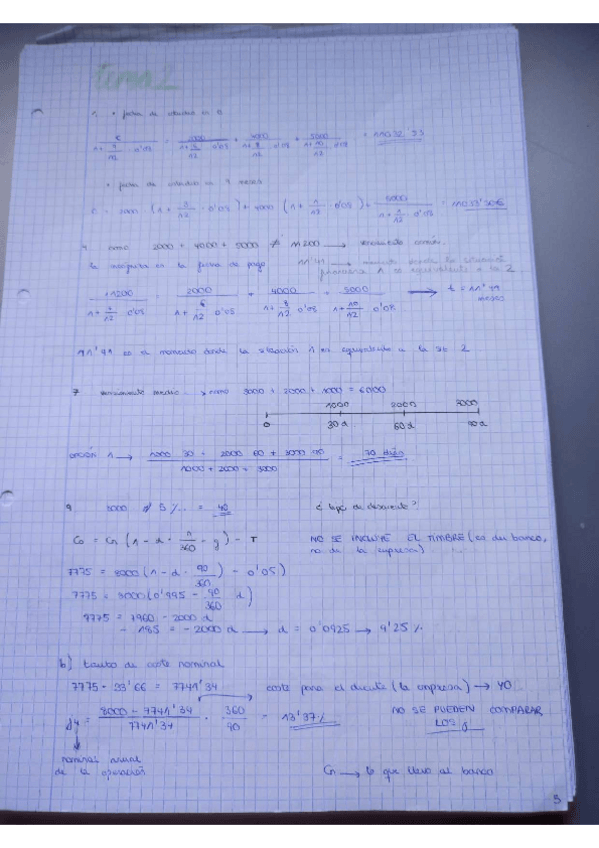 tema 2
1. • fecha de estudio en 0
C / (1 + 9/12 · 0'05) = 2000 / (1 + /12 · 0'05) + 4000 / (1 + 8/12 · 0'05) + 5000 / (1 + 10/12 · 0'05) =
• fecha de estudio en 9 meses
C = 2000 (1 + 3/12 · 0'05) + 4000 (1 + 1/12 · 0'05) + 5000 / (1 + 1/12 · 0'05) =
como 2000 + 4000 + 5000 ≠ 11200 → vencimiento común.
la incógnita es la fecha de pago 11'49 → momento donde la situación
1 es equivalente a la 2
11200 / (1 + /12 · 0'05) = 2000 / (1 + 6/12 · 0'05) + 4000 / (1 + 8/12 · 0'05) + 5000 / (1 + 10/12 · 0'05) → t = 11'49
meses
11'49 es el momento donde la situación 1 es equivalente a la sit 2
7 vencimiento medio → como 3000 + 2000 + 1000 = 6000
1000 2000 3000
0 30 d 60 d 90 d
opción 1 → (1000 · 30 + 2000 · 60 + 3000 · 90) / (1000 + 2000 + 3000) = 70 días
9 8000 d 5 ‰ = 40 ¿tipo de descuento?
Co = Cn (1 - d · n/360 - g) - T NO SE INCLUYE EL TIMBRE (es del banco,
no de la empresa)
7775 = 8000 (1 - d · 90/360) - 0'05)
7775 = 8000 (0'995 - 90/360 d)
7775 = 7960 - 2000 d
- 185 = - 2000 d → d = 0'0925 → 9'25 %
b) tanto de coste nominal
7775 - 33'66 = 7741'34 coste para el cliente (la empresa) → 40
j4 = (8000 - 7741'34) / 7741'34 · 360/90 = 13'37% NO SE PUEDEN COMPARAR
LOS j
nominal anual
de la operación
Cn → lo que llevo al banco
3